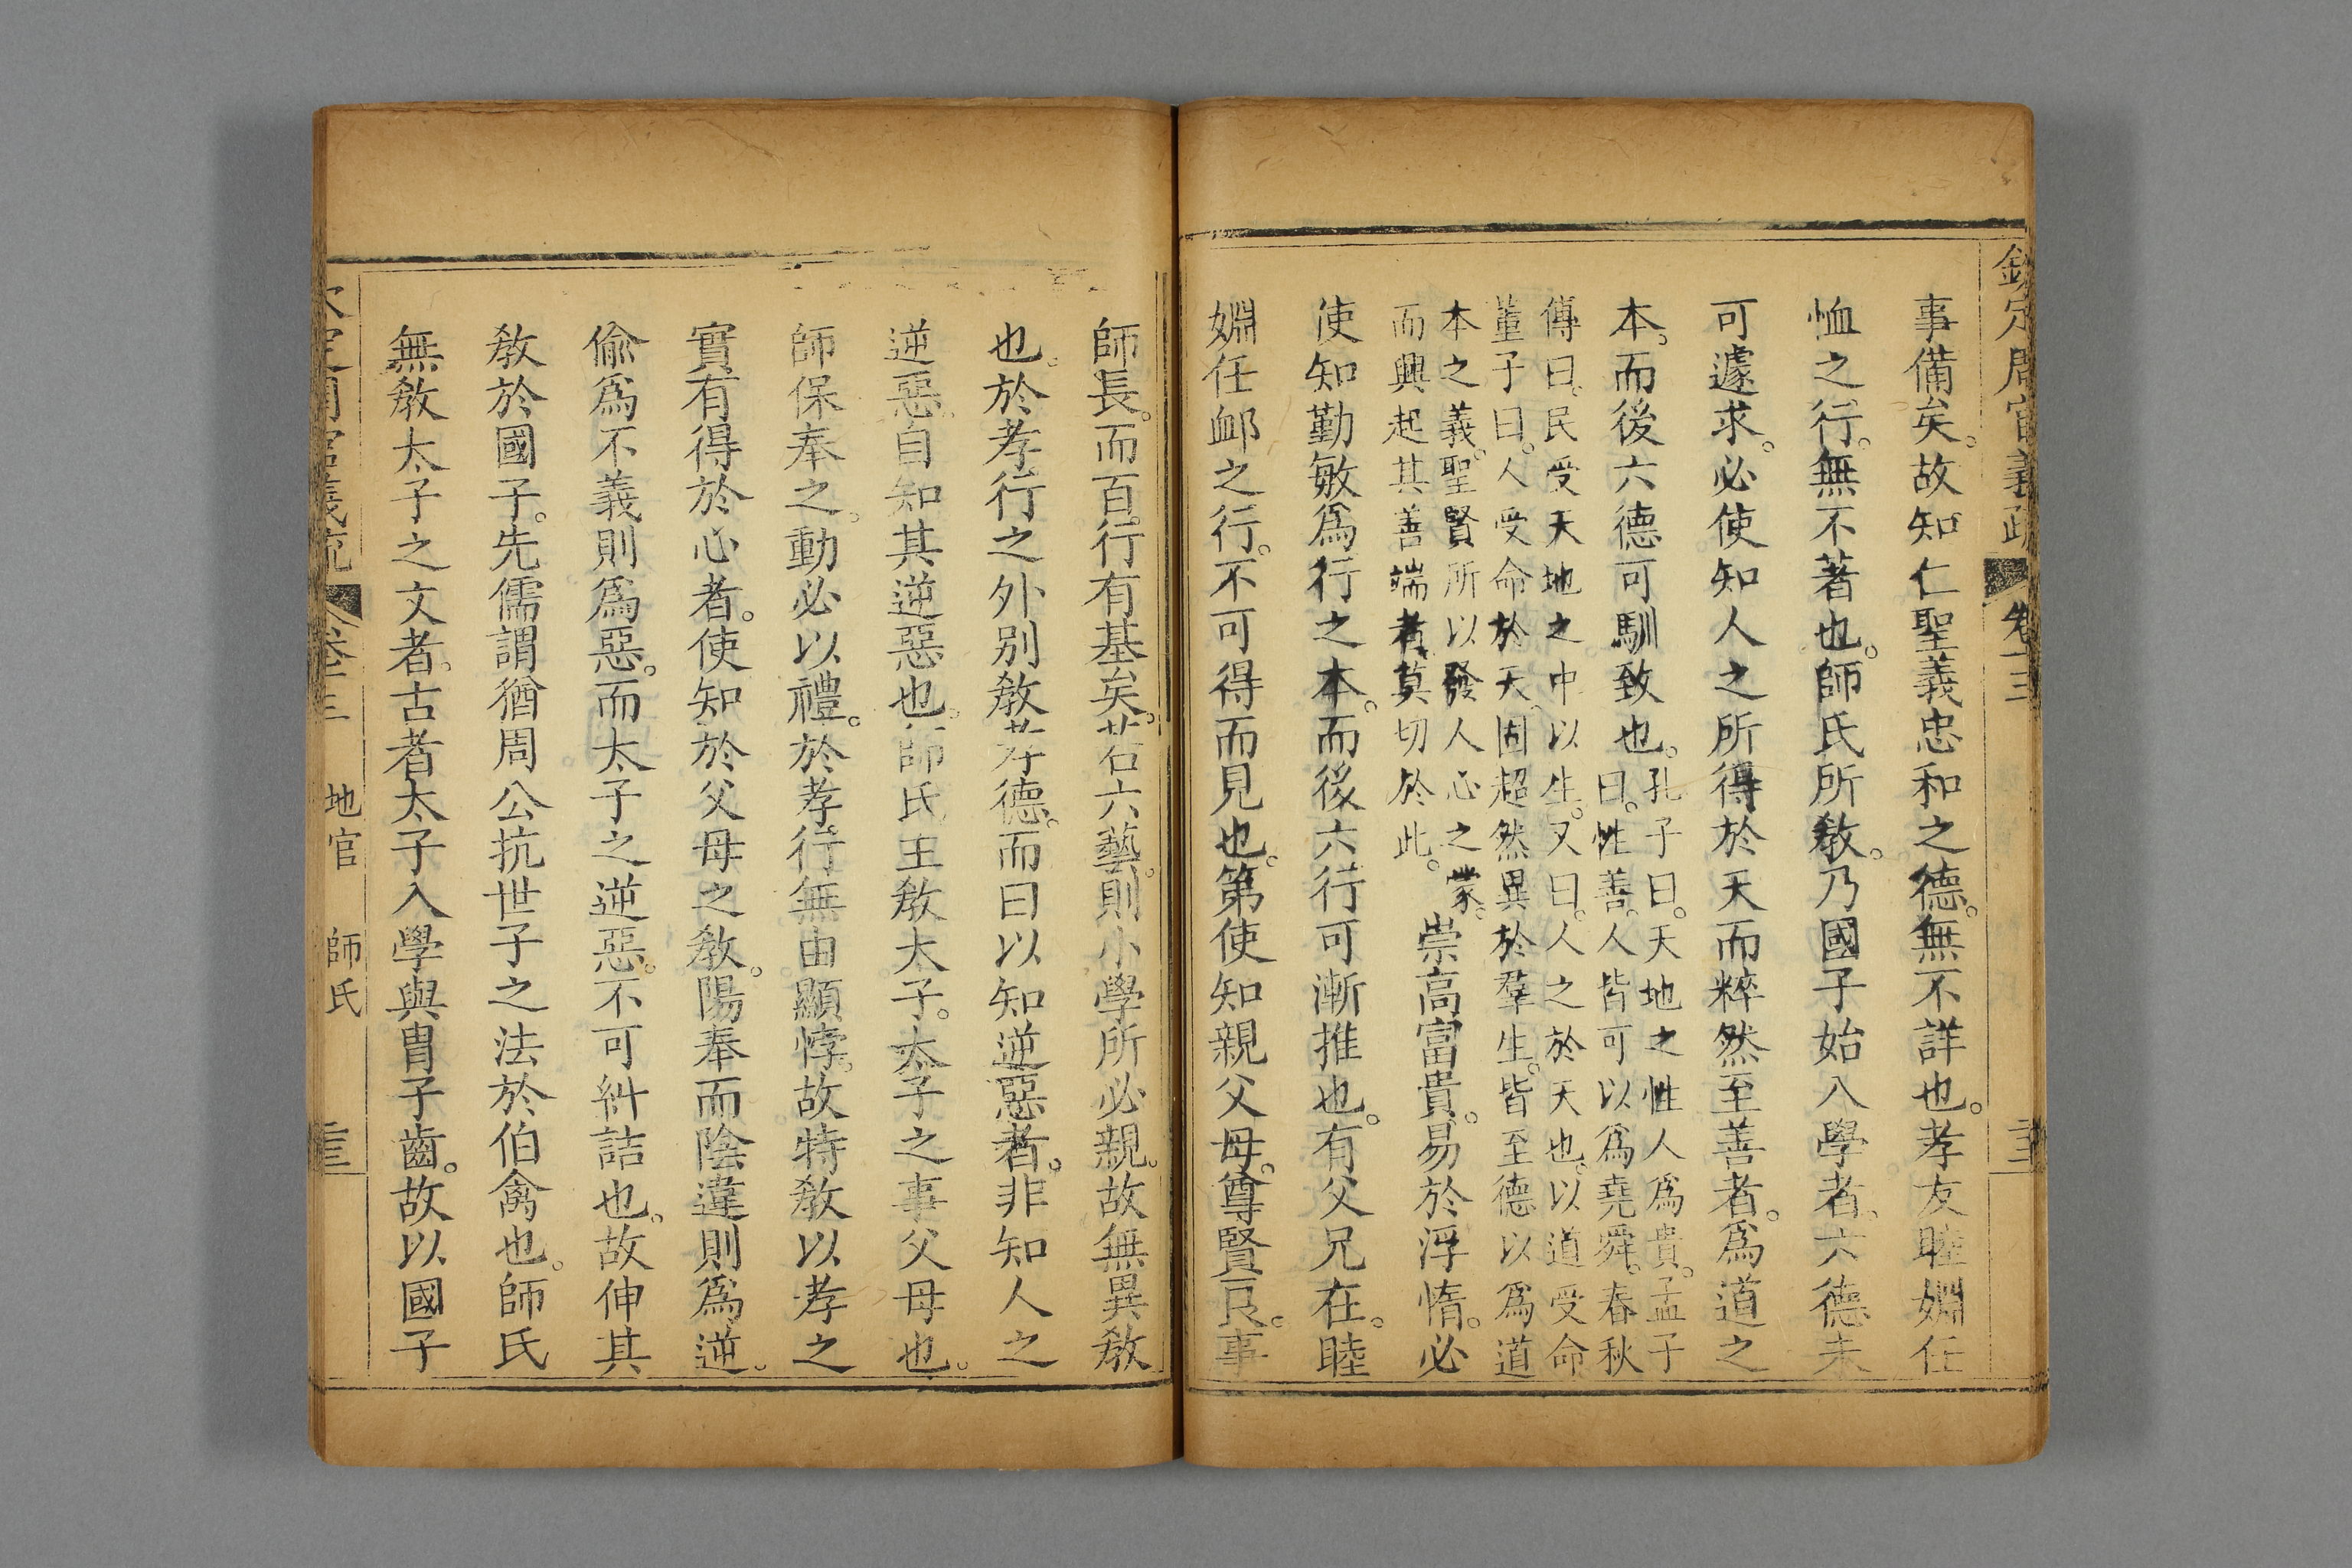 欽定周官義疏 卷十三
事備矣。故知仁聖義忠和之德。無不詳也。孝友睦婣任
恤之行。無不著也。師氏所敎。乃國子始入學者。六德未
可遽求。必使知人之所得於天而粹然至善者。爲道之
本。而後六德可馴致也。孔子曰。天地之性人爲貴。孟子
曰。性善。人皆可以爲堯舜。春秋
傳曰。民受天地之中以生。又曰。人之於天也。以道受命
董子曰。人受命於天。固超然異於羣生。皆至德以爲道
本之義。聖賢所以發人心之蒙。
而興起其善端者。莫切於此。
崇高富貴。易於浮惰。必
使知勤敏爲行之本。而後六行可漸推也。有父兄在。睦
婣任卹之行。不可得而見也。第使知親父母。尊賢良。事
師長。而百行有基矣。若六藝。則小學所必親。故無異敎
也。於孝行之外別敎孝德。而曰以知逆惡者。非知人之
逆惡。自知其逆惡也。師氏主敎太子。太子之事父母也。
師保奉之。動必以禮。於孝行無由顯悖。故特敎以孝之
實有得於心者。使知於父母之敎。陽奉而陰違則爲逆。
偸爲不義則爲惡。而太子之逆惡。不可糾詰也。故伸其
敎於國子。先儒謂猶周公抗世子之法於伯禽也。師氏
無敎太子之文者。古者太子入學與胄子齒。故以國子
地官 師氏